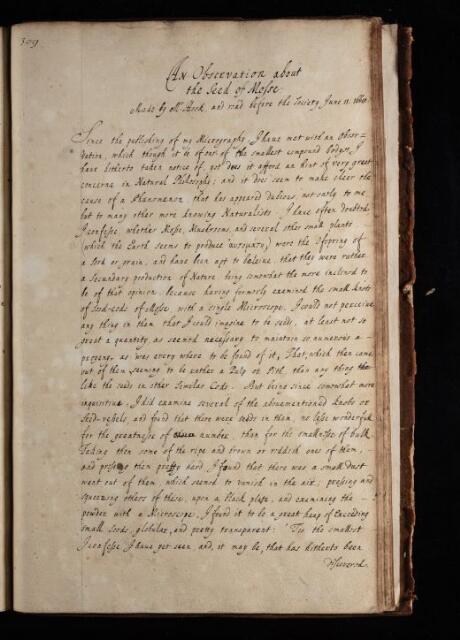 309
An Observation about
the Seed of Mosse.
Made by Mr. Hook, and read before the Society June 11. 1668.
Since the publishing of my Micrography, I have met with an Obser=
vation, which though it is of one of the smallest compound bodys, I
have hitherto taken notice of; yet does it afford an hint of very great
concern in Natural Philosophy; and it does seem to make cleer the
cause of a Phænomenon, that has appeared dubious, not only to me
but to many other more knowing Naturalists. I have often doubted,
I confesse, whether Mosse, Mushrooms, and several other small plants
(which the Earth seems to produce ) were the Ofspring of
a Seed or grain, and have been apt to beleive, that they were rather
a Secundary production of Nature, being somewhat the more inclined to
be of that opinion, because having formerly examined the small knots
of seed-cods of Mosse with a single Microscope, I could not perceive
any thing in them that I could imagine to be seeds, at least not so
great a quantity, as seemed necessary to maintain so numerous a
progeny, as was every where to be found of it; That, which then came
out of them seeming to be rather a Pulp or Pith, then any thing
like the seeds in other Similar Cods. But being since somewhat more
inquisitive, I did examine several of the abovementioned knobs or
Seed-vessels, and found that there were seeds in them, no lesse wonderful
for the greatnesse of number, than for the smallnesse of bulk.
Taking then some of the ripe and brown or reddish ones of them,
and pressing them pretty hard, I found that there was a small dust
went out of them, which seemed to vanish in the air; pressing and
squeezing others of these, upon a black plate, and examining the
powder with a Microscope, I found it to be a great heap of Exceeding
small seeds, globular, and pretty transparent. 'Tis the smallest
I confesse I have yet seen and, it may be, that has hitherto been
discovered.